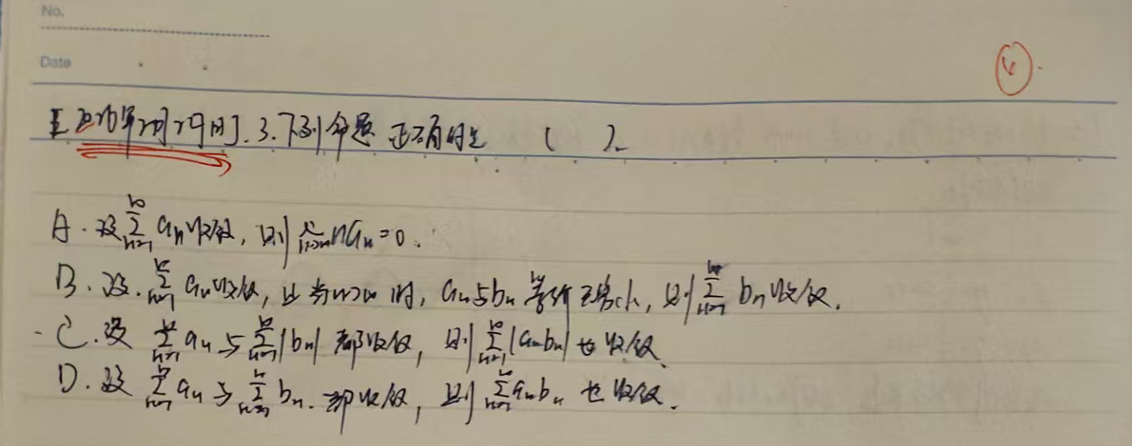 No.
Date
④.
3.下列命题正确的是 ( ).
A.设∑_{n=1}^{∞} aₙ收敛,则lim_{n→∞} naₙ=0.
B.设∑_{n=1}^{∞} aₙ收敛,且当n→∞时,aₙ与bₙ等价无穷小,则∑_{n=1}^{∞} bₙ收敛.
C.设∑_{n=1}^{∞} aₙ与∑_{n=1}^{∞}|bₙ|都收敛,则∑_{n=1}^{∞}|aₙbₙ|也收敛.
D.设∑_{n=1}^{∞} aₙ与∑_{n=1}^{∞} bₙ.都收敛,则∑_{n=1}^{∞} aₙbₙ也收敛.